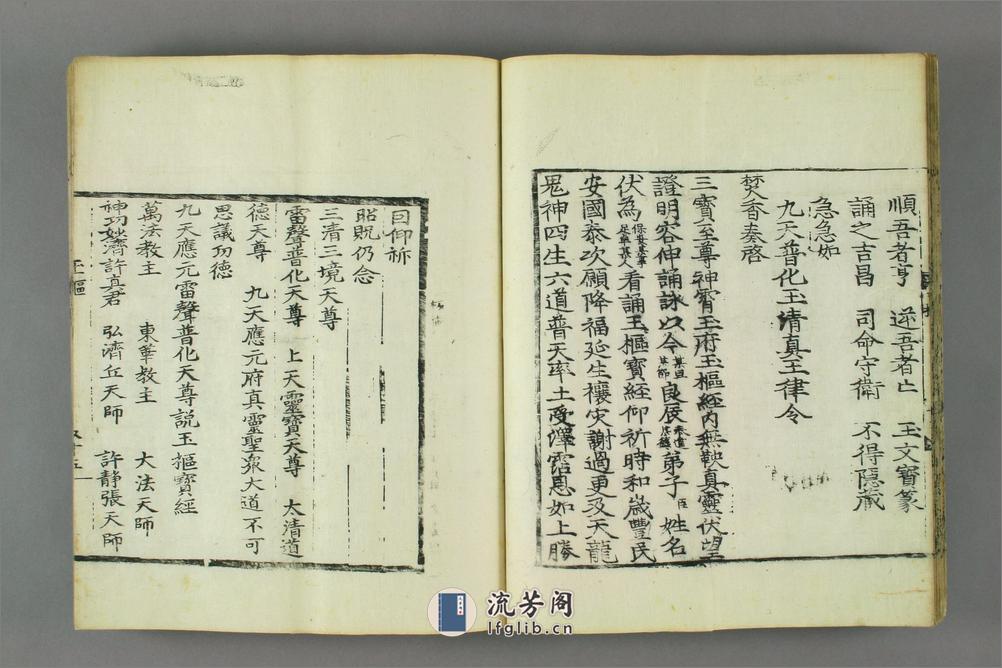 順吾者亨　逆吾者亡　玉文寳篆
誦之吉昌　司命守衛　不得隠藏
急急如
九天普化玉清真王律令
焚香奏啓
三寳至尊神霄玉府玉樞經内無鞅真靈伏望
證明容伸誦詠以今某月某節良辰弟子臣姓名
伏為看誦玉樞寳經仰祈時和歳豐民
安國泰次願降福延生禳灾謝過更及天龍
鬼神四生六道普天率土受澤霑恩如上勝
因仰祈
貽貺仍念
三清三境天尊
雷聲普化天尊　上天靈寳天尊　太清道
德天尊　九天應元府真靈聖衆大道不可
思議功德
九天應元雷聲普化天尊説玉樞寳經
萬法教主　東華教主　大法天師
神功妙濟許真君　弘濟丘天師　許静張天師
玉樞
流芳阁
lfglib.cn